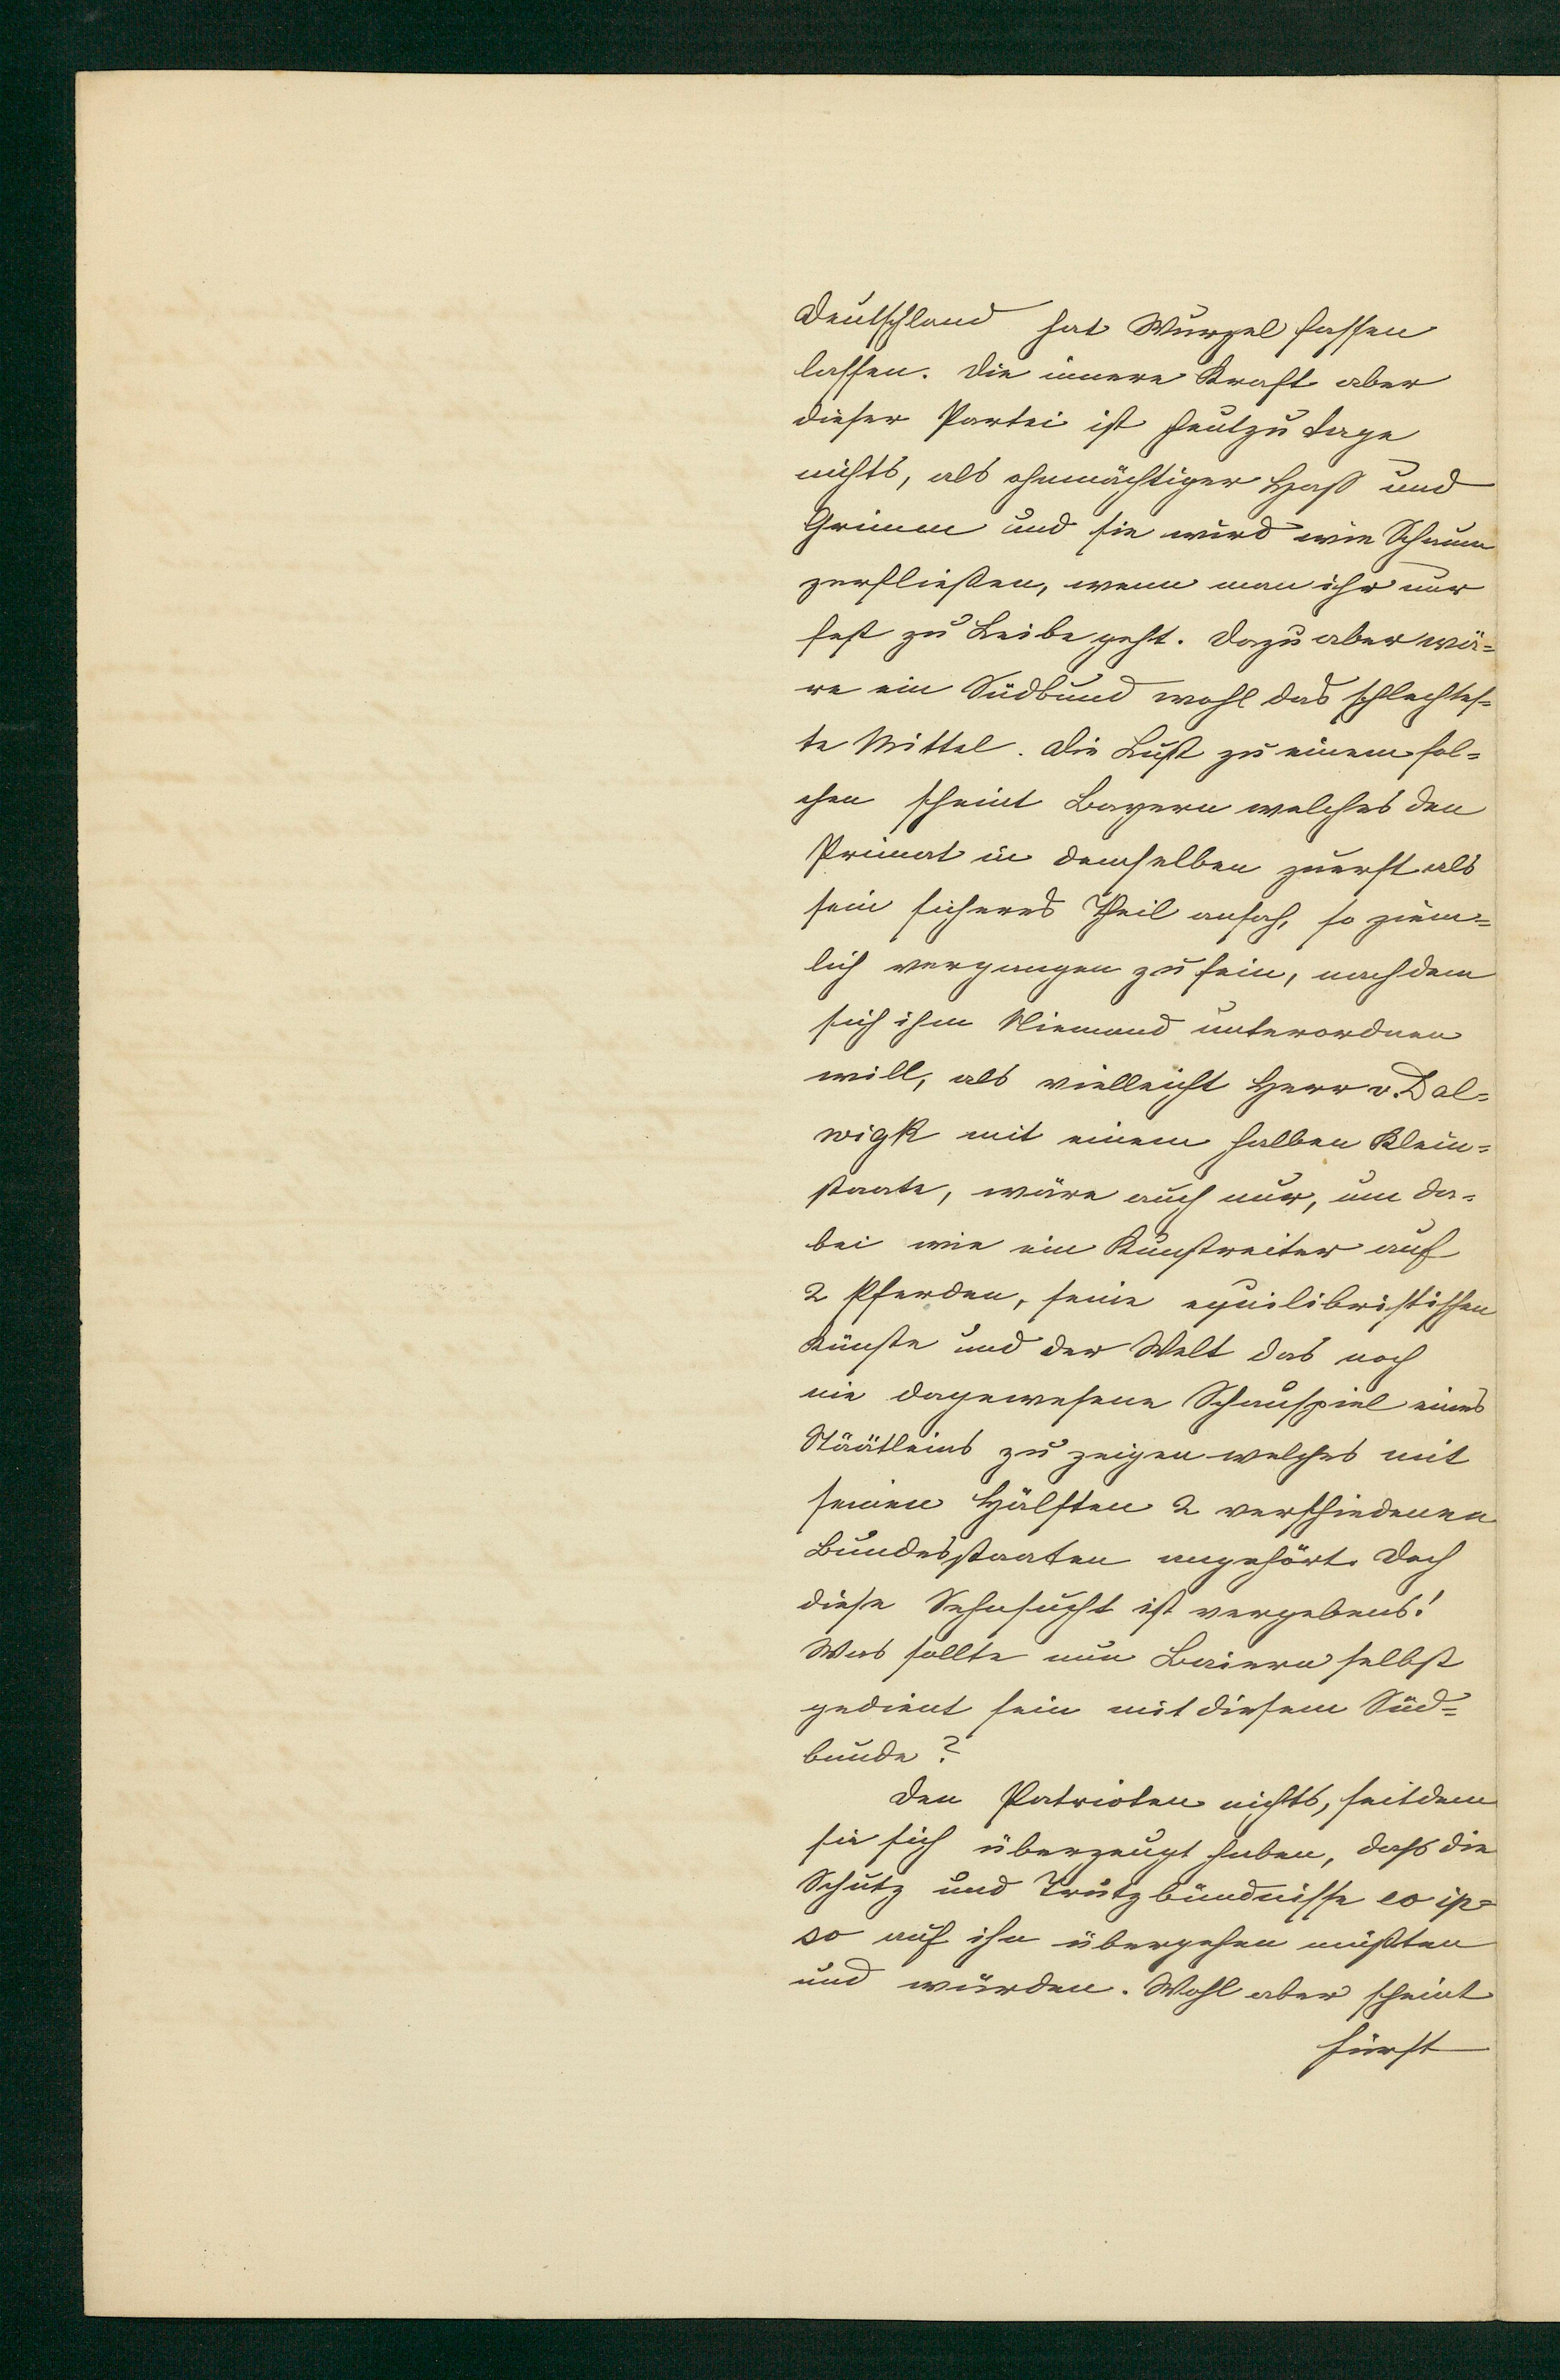 Deutschland hat Wurzel fassen
lassen. Die innere Kraft aber
dieser Partei ist heutzutage
nichts, als ohnmächtiger Haß und
Grimm und sie wird wie Schaum
zerfließen, wenn man ihr nur
fest zu Leibe geht. Dazu aber wä=
re ein Südbund wohl das schlechtes=
te Mittel. Die Lust zu einem sol=
chen scheint Bayern welches den
Primat in demselben zuerst als
sein sicheres Theil ansah, so ziem=
lich vergangen zu sein, nachdem
sich ihm Niemand unterordnen
will, als vielleicht Herr v. Dal=
wigk mit einem halben Klein=
staate, wäre auch nur, um da=
bei wie ein Kunstreiter auf
2 Pferden, seine equilibristischen
Künste und der Welt das noch
nie dagewesene Schauspiel eines
Stäätleins zu zeigen welches mit
seinen Hälften 2 verschiedenen
Bundesstaaten angehört. Doch
diese Sehnsucht ist vergebens!
Was sollte nun Baiern selbst
gedient sein mit diesem Süd=
bunde?
Den Patrioten nichts, seitdem
sie sich überzeugt haben, daß die
Schutz und Trutzbündnisse eo ip=
so auf ihn übergehen müßten
und würden. Wohl aber scheint
Fürst